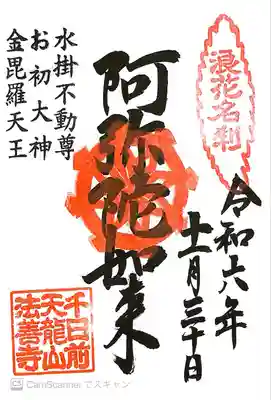 浪花名刹
令和六年
十一月三十日
阿弥陀如来
水掛不動尊
お初大神
金毘羅天王
千日前
天龍山
法善寺
CS CamScanner でスキャン